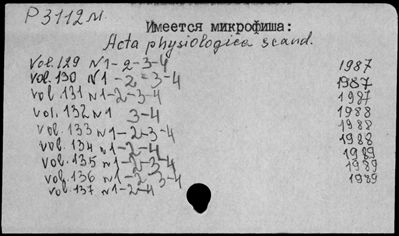 Р3112м.
Имеется микрофиша:
Acta physiologica scand.
Vol. 129 N1-2-3-4 1987
Vol. 130 N1-2-3-4 1987
vol. 131 N1-2-3-4 1987
vol. 132 N1 3-4 1988
vol. 133 N1-2-3-4 1988
vol. 134 N1-2-4 1988
vol. 135 N1-2-3-4 1989
vol. 136 N1-2-3-4 1989
vol. 137 N1-2-4 1989